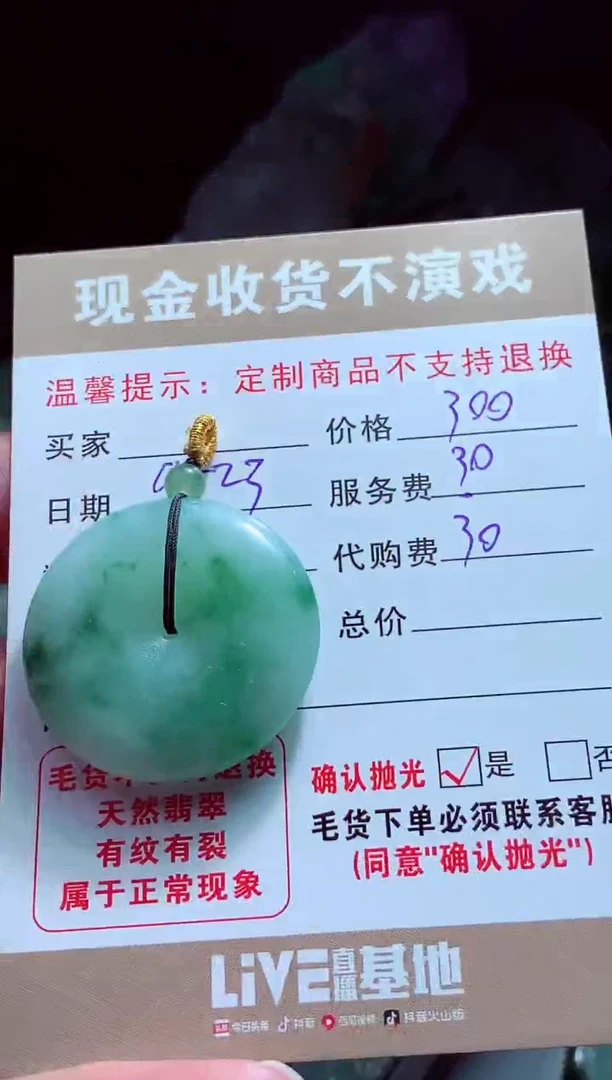 现金收货不演戏
温馨提示：定制商品不支持退换
买家
价格 300
日期 23
服务费 30
代购费 30
总价
毛货 退换
天然翡翠
有纹有裂
属于正常现象
确认抛光 ✓是 否
毛货下单必须联系客服
(同意"确认抛光")
LiVE直播基地
今日头条 抖音 西瓜视频 抖音火山版